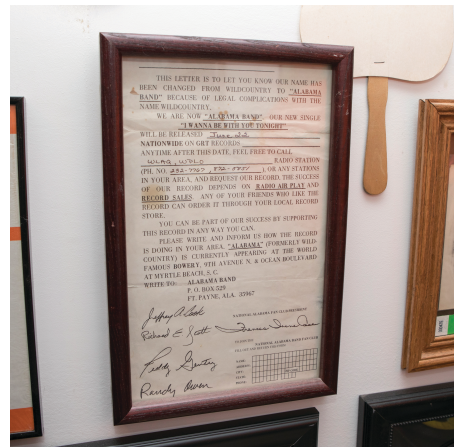 THIS LETTER IS TO LET YOU KNOW OUR NAME HAS
BEEN CHANGED FROM WILDCOUNTRY TO "ALABAMA
BAND" BECAUSE OF LEGAL COMPLICATIONS WITH THE
NAME WILDCOUNTRY.
WE ARE NOW "ALABAMA BAND". OUR NEW SINGLE
"I WANNA BE WITH YOU TONIGHT"
WILL BE RELEASED June
NATIONWIDE ON GRT RECORDS
ANYTIME AFTER THIS DATE, FEEL FREE TO CALL
WLAQ, WPLO RADIO STATION
(PH. NO. ), OR ANY STATIONS
IN YOUR AREA, AND REQUEST OUR RECORD. THE SUCCESS
OF OUR RECORD DEPENDS ON RADIO AIR PLAY AND
RECORD SALES. ANY OF YOUR FRIENDS WHO LIKE THE
RECORD CAN ORDER IT THROUGH YOUR LOCAL RECORD
STORE.
YOU CAN BE PART OF OUR SUCCESS BY SUPPORTING
THIS RECORD IN ANY WAY YOU CAN.
PLEASE WRITE AND INFORM US HOW THE RECORD
IS DOING IN YOUR AREA. "ALABAMA" (FORMERLY WILD-
COUNTRY) IS CURRENTLY APPEARING AT THE WORLD
FAMOUS BOWERY, 9TH AVENUE N. & OCEAN BOULEVARD
AT MYRTLE BEACH, S. C.
WRITE TO: ALABAMA BAND
P. O. BOX 529
FT. PAYNE, ALA. 35967
NATIONAL ALABAMA FAN CLUB PRESIDENT
Jeffrey A. Cook
Richard E. Scott
NATIONAL ALABAMA BAND FAN CLUB
Teddy Gentry
NAME:
ADDRESS:
CITY:
Randy Owen
PHONE: